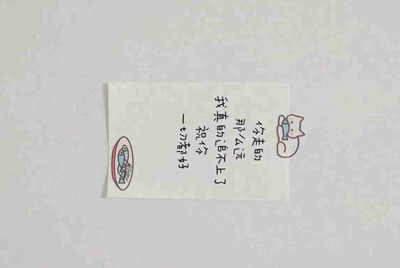 你走的
那么远
我真的追不上了
祝你
一切都好